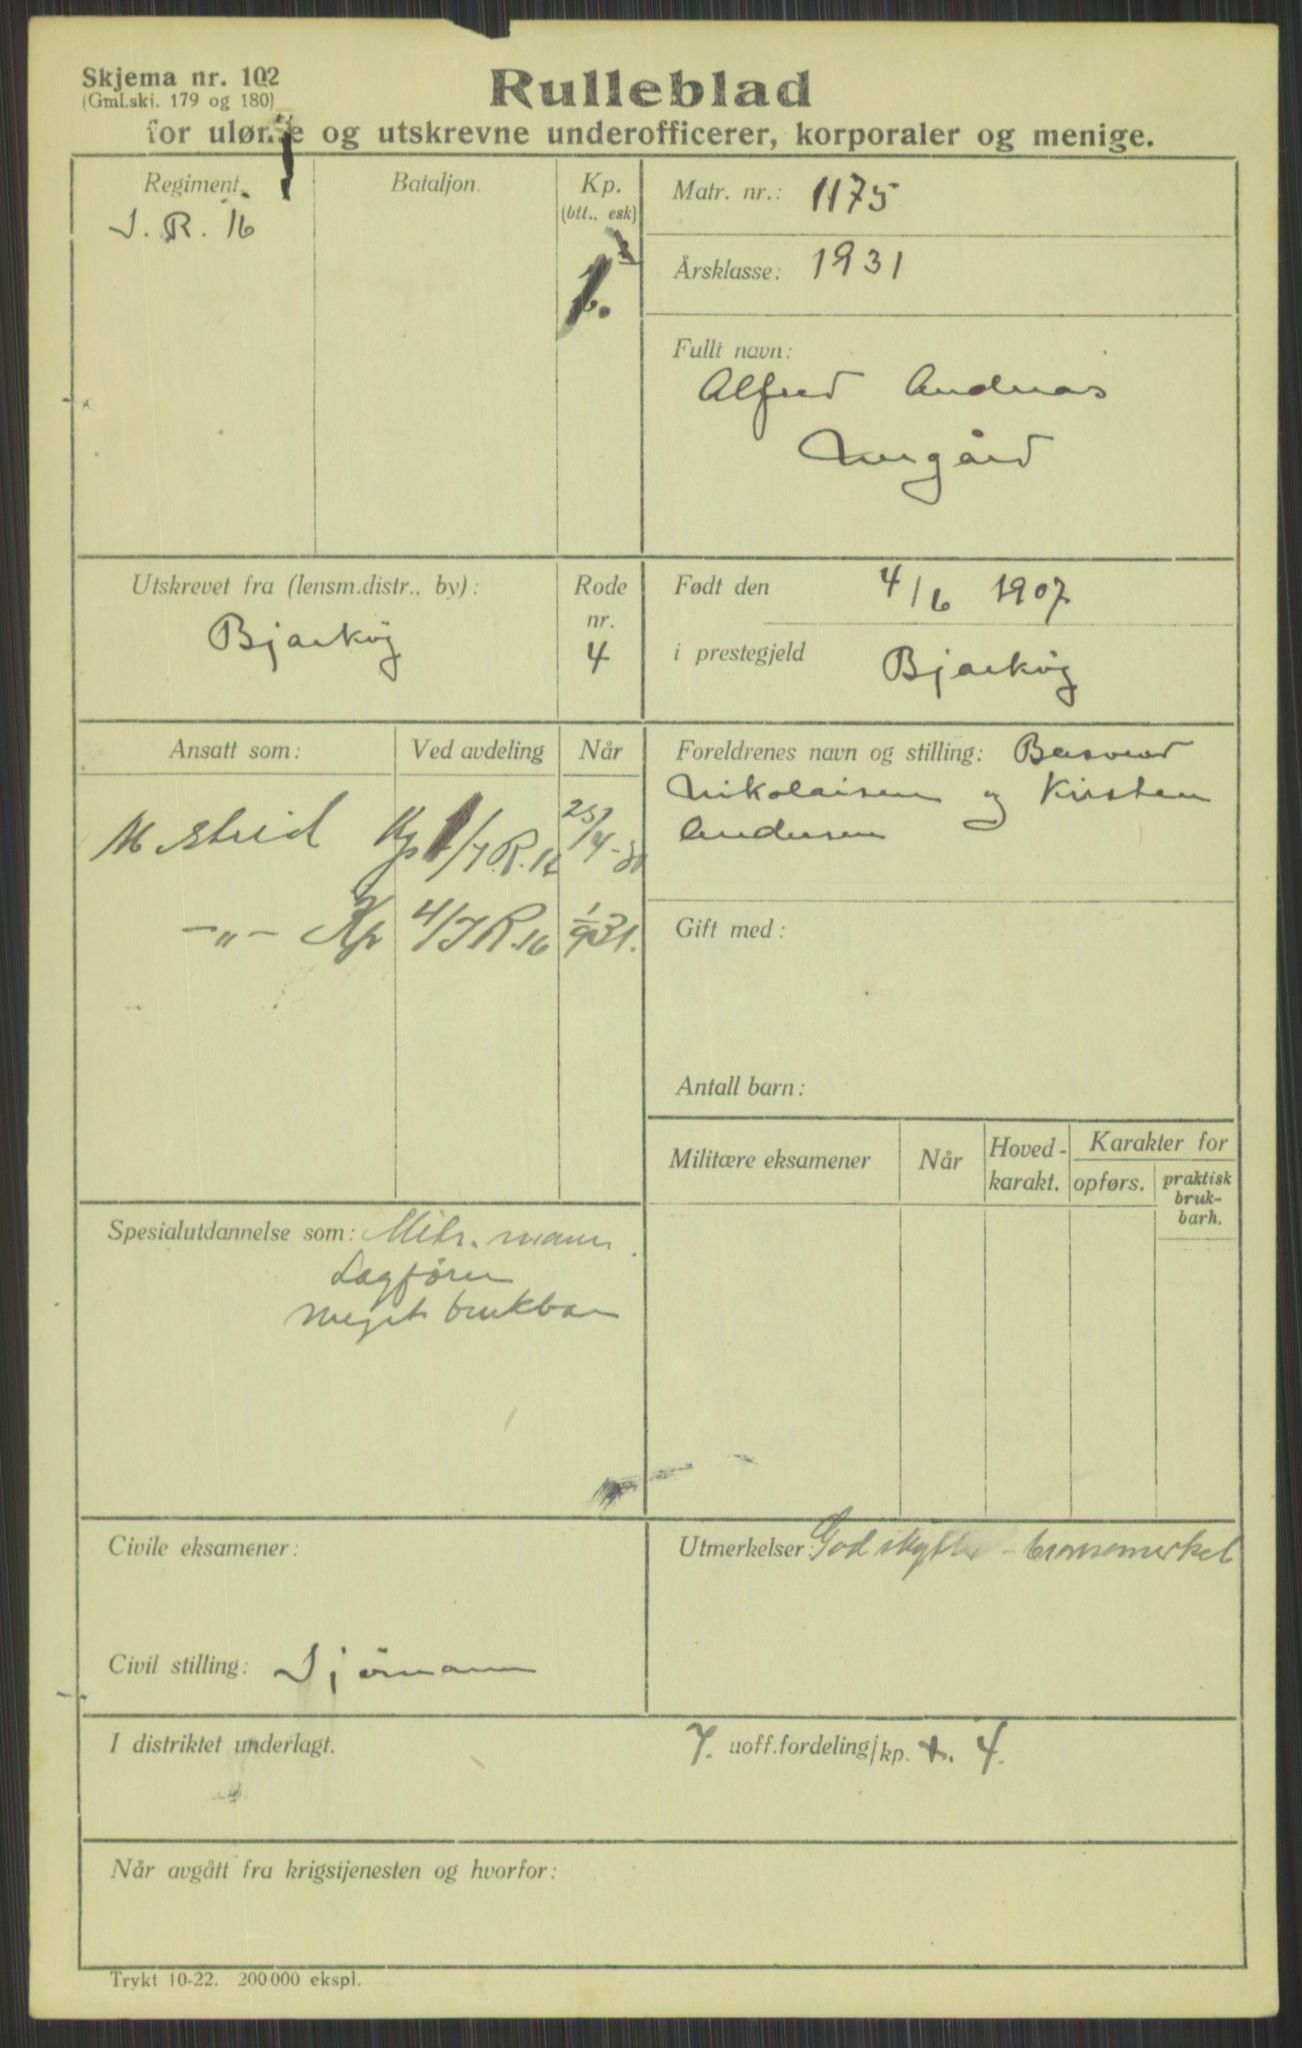 Skjema nr. 102
(Gml.skj. 179 og 180)
Rulleblad
for uløn e og utskrevne underofficerer, korporaler og menige.
Regiment.
I. R. 16
Bataljon.
Kp.
(btt., esk)
Matr. nr.: 1175
Årsklasse: 1931
Fullt navn:
Alfred Andreas
Utskrevet fra (lensm.distr., by):
Bjarkøy
Rode
nr.
4
Født den 4/6 1907
i prestegjeld Bjarkøy
Ansatt som:
Ved avdeling
Når
4/I R. 16
Foreldrenes navn og stilling:
Nikolaisen og Kirsten
Andersen
Gift med:
Antall barn:
Militære eksamener
Når
Hoved-
karakt.
Karakter for
opførs.
praktisk
bruk-
barh.
Spesialutdannelse som: Mitr. mann.
Lagfører
meget brukbar
Civile eksamener:
Civil stilling: Sjømann
Utmerkelser: God skytter - bronsemerket
I distriktet underlagt.
7. uoff.fordeling/kp. 4.
Når avgått fra krigstjenesten og hvorfor:
Trykt 10-22. 200 000 ekspl.